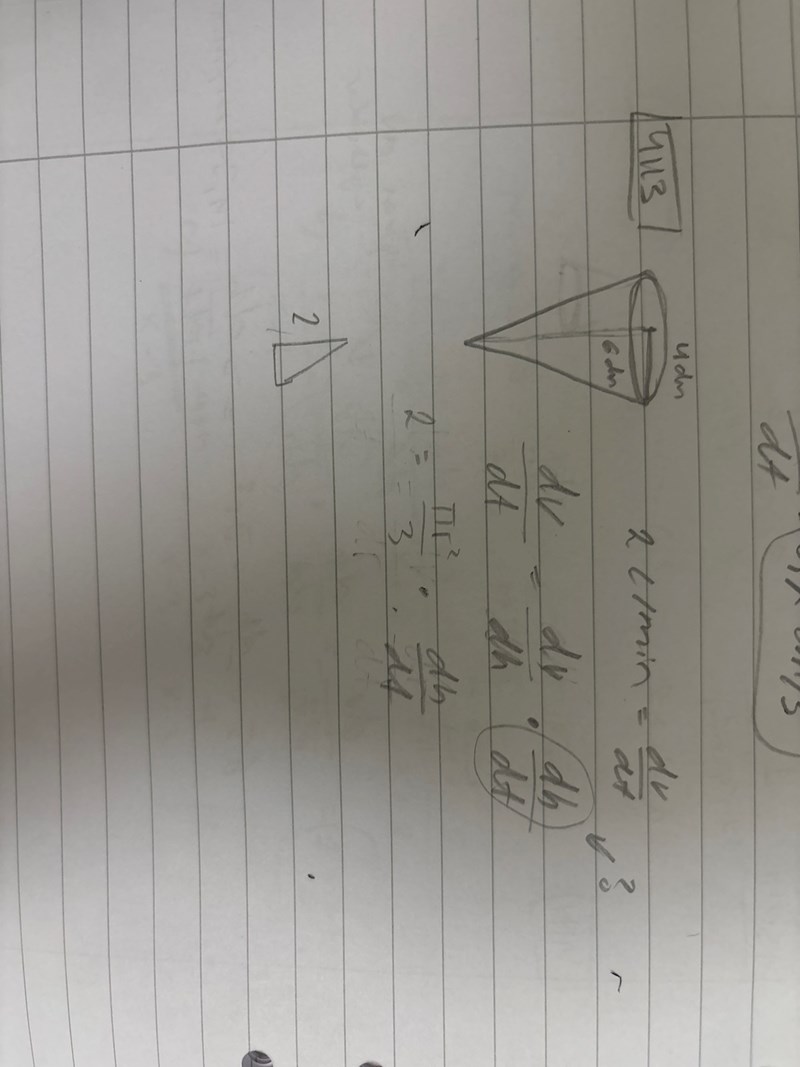 dt
4113
4dm
6dm
2 L/min = dv/dt
v?
dv/dt = dv/dh · dh/dt
2 = πr²/3 · dh/dt
2